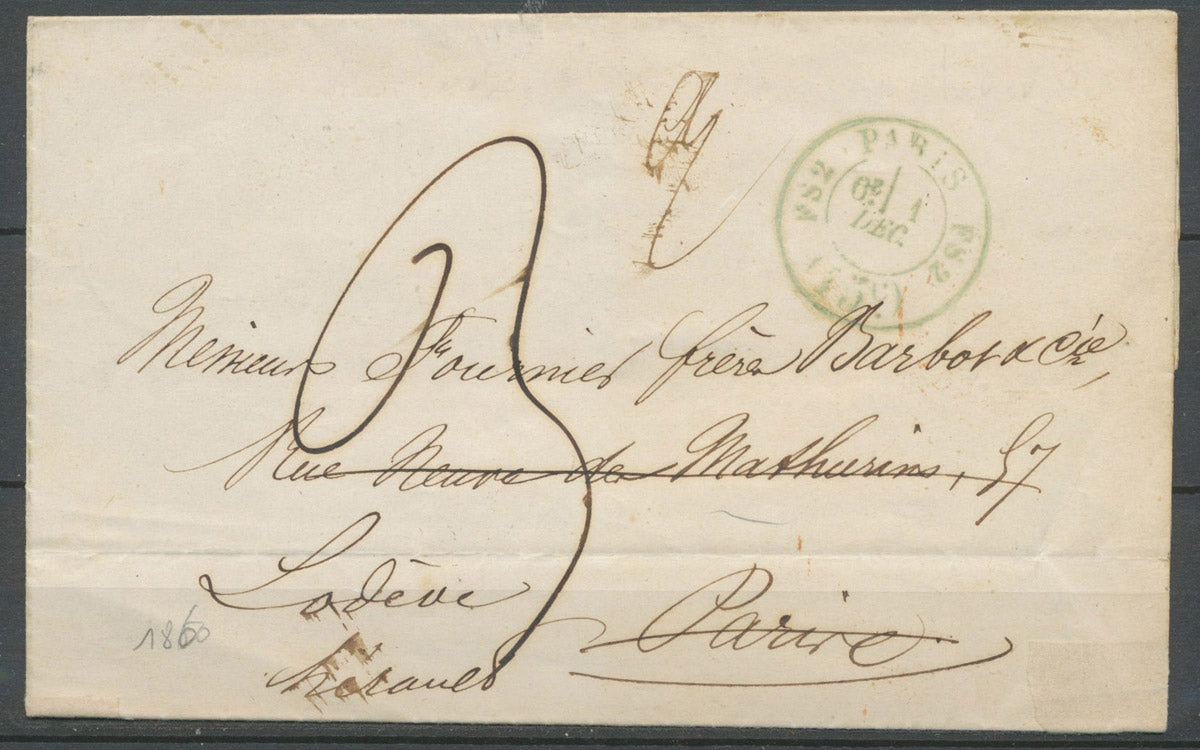 PARIS
FS2 FS2
1
DEC.
3
Messieurs Fournier frères Barbot & Cie,
Rue Neuve des Mathurins, 57
Lodève Paris
Hérault
1860